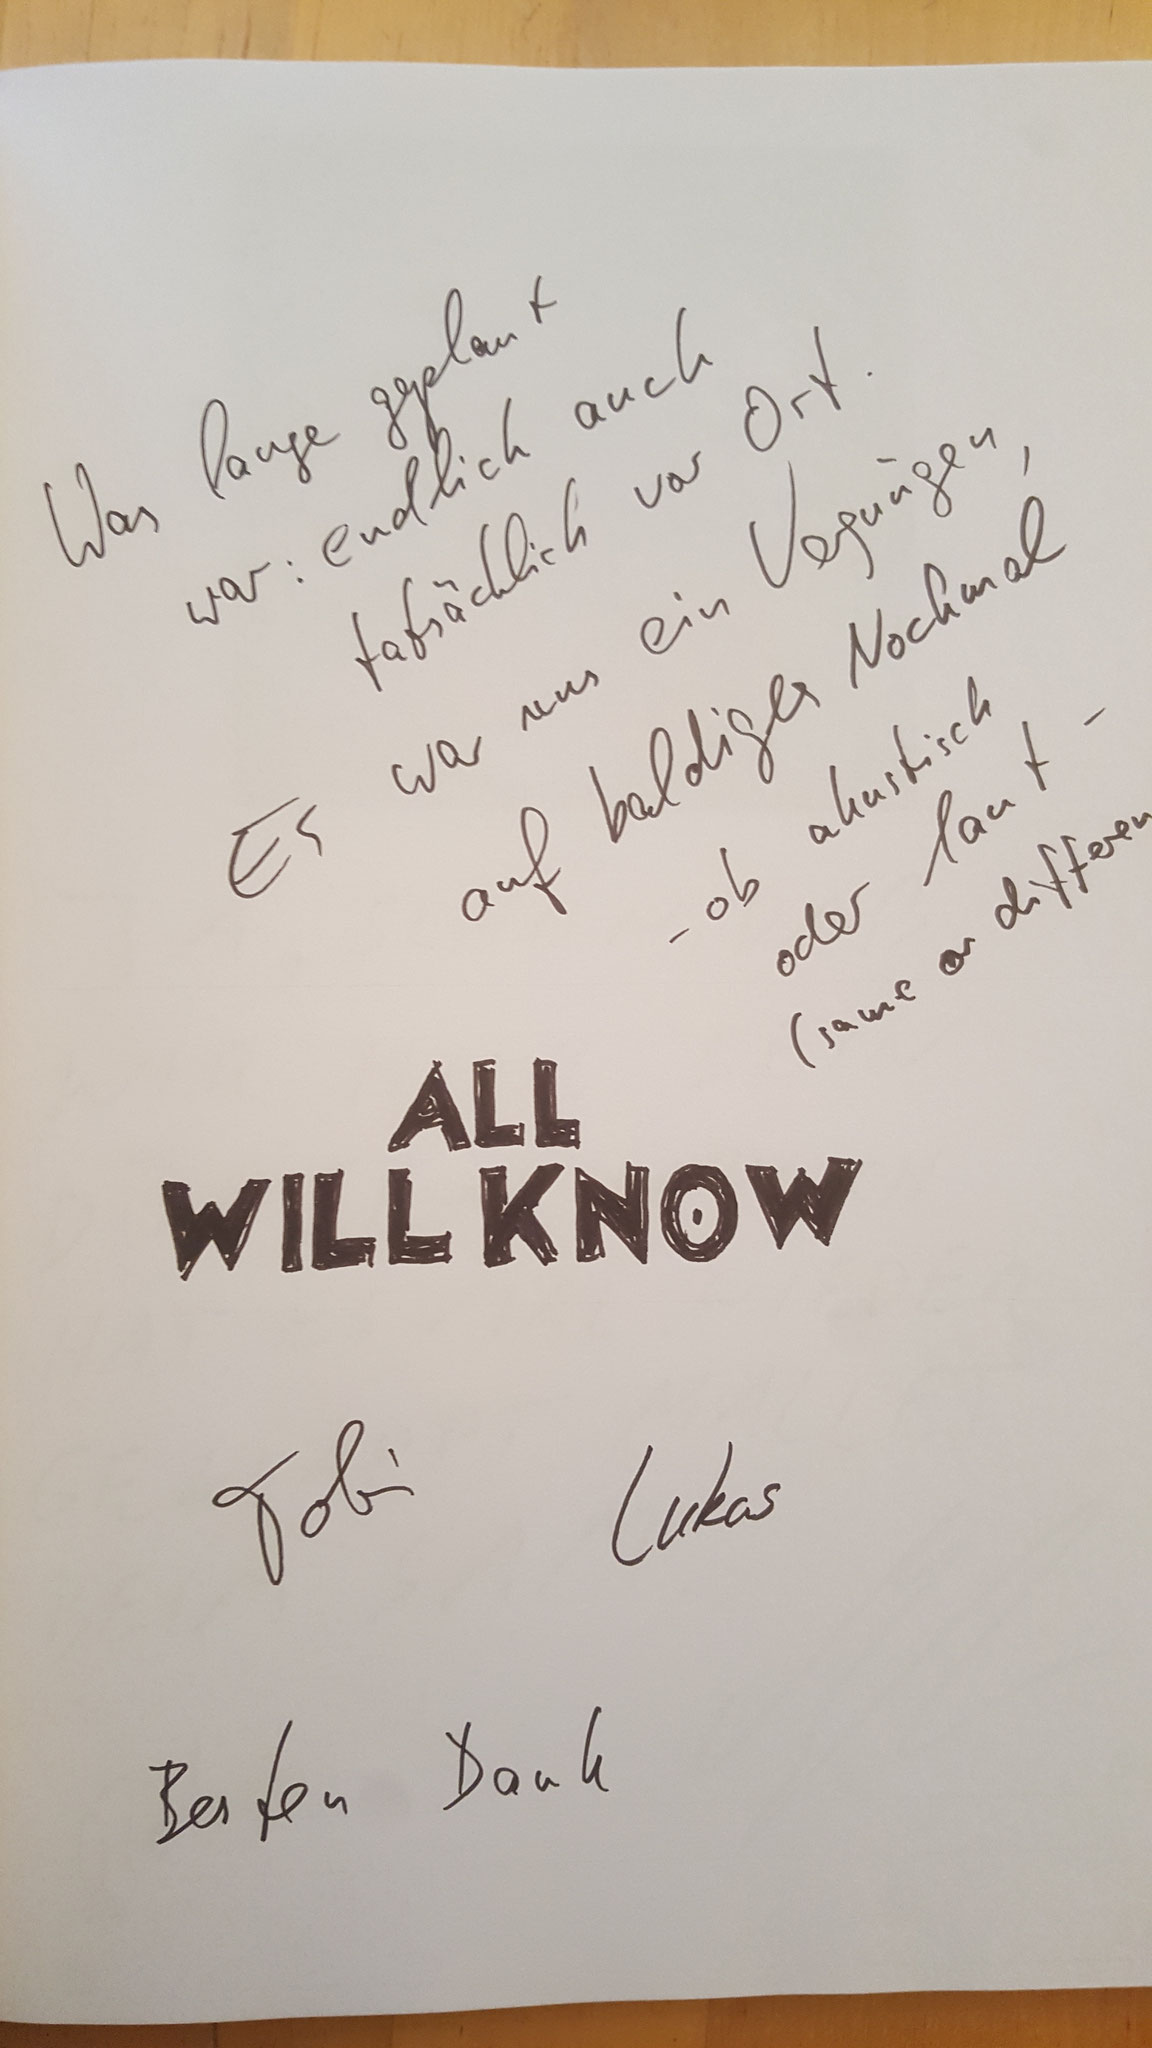 Was lange geplant
war: endlich auch
tatsächlich vor Ort.
Es war uns ein Vegnügen,
auf baldiges Nochmal
- ob akustisch
oder laut -
(same or differen
ALL
WILL KNOW
Tobi Lukas
Besten Dank